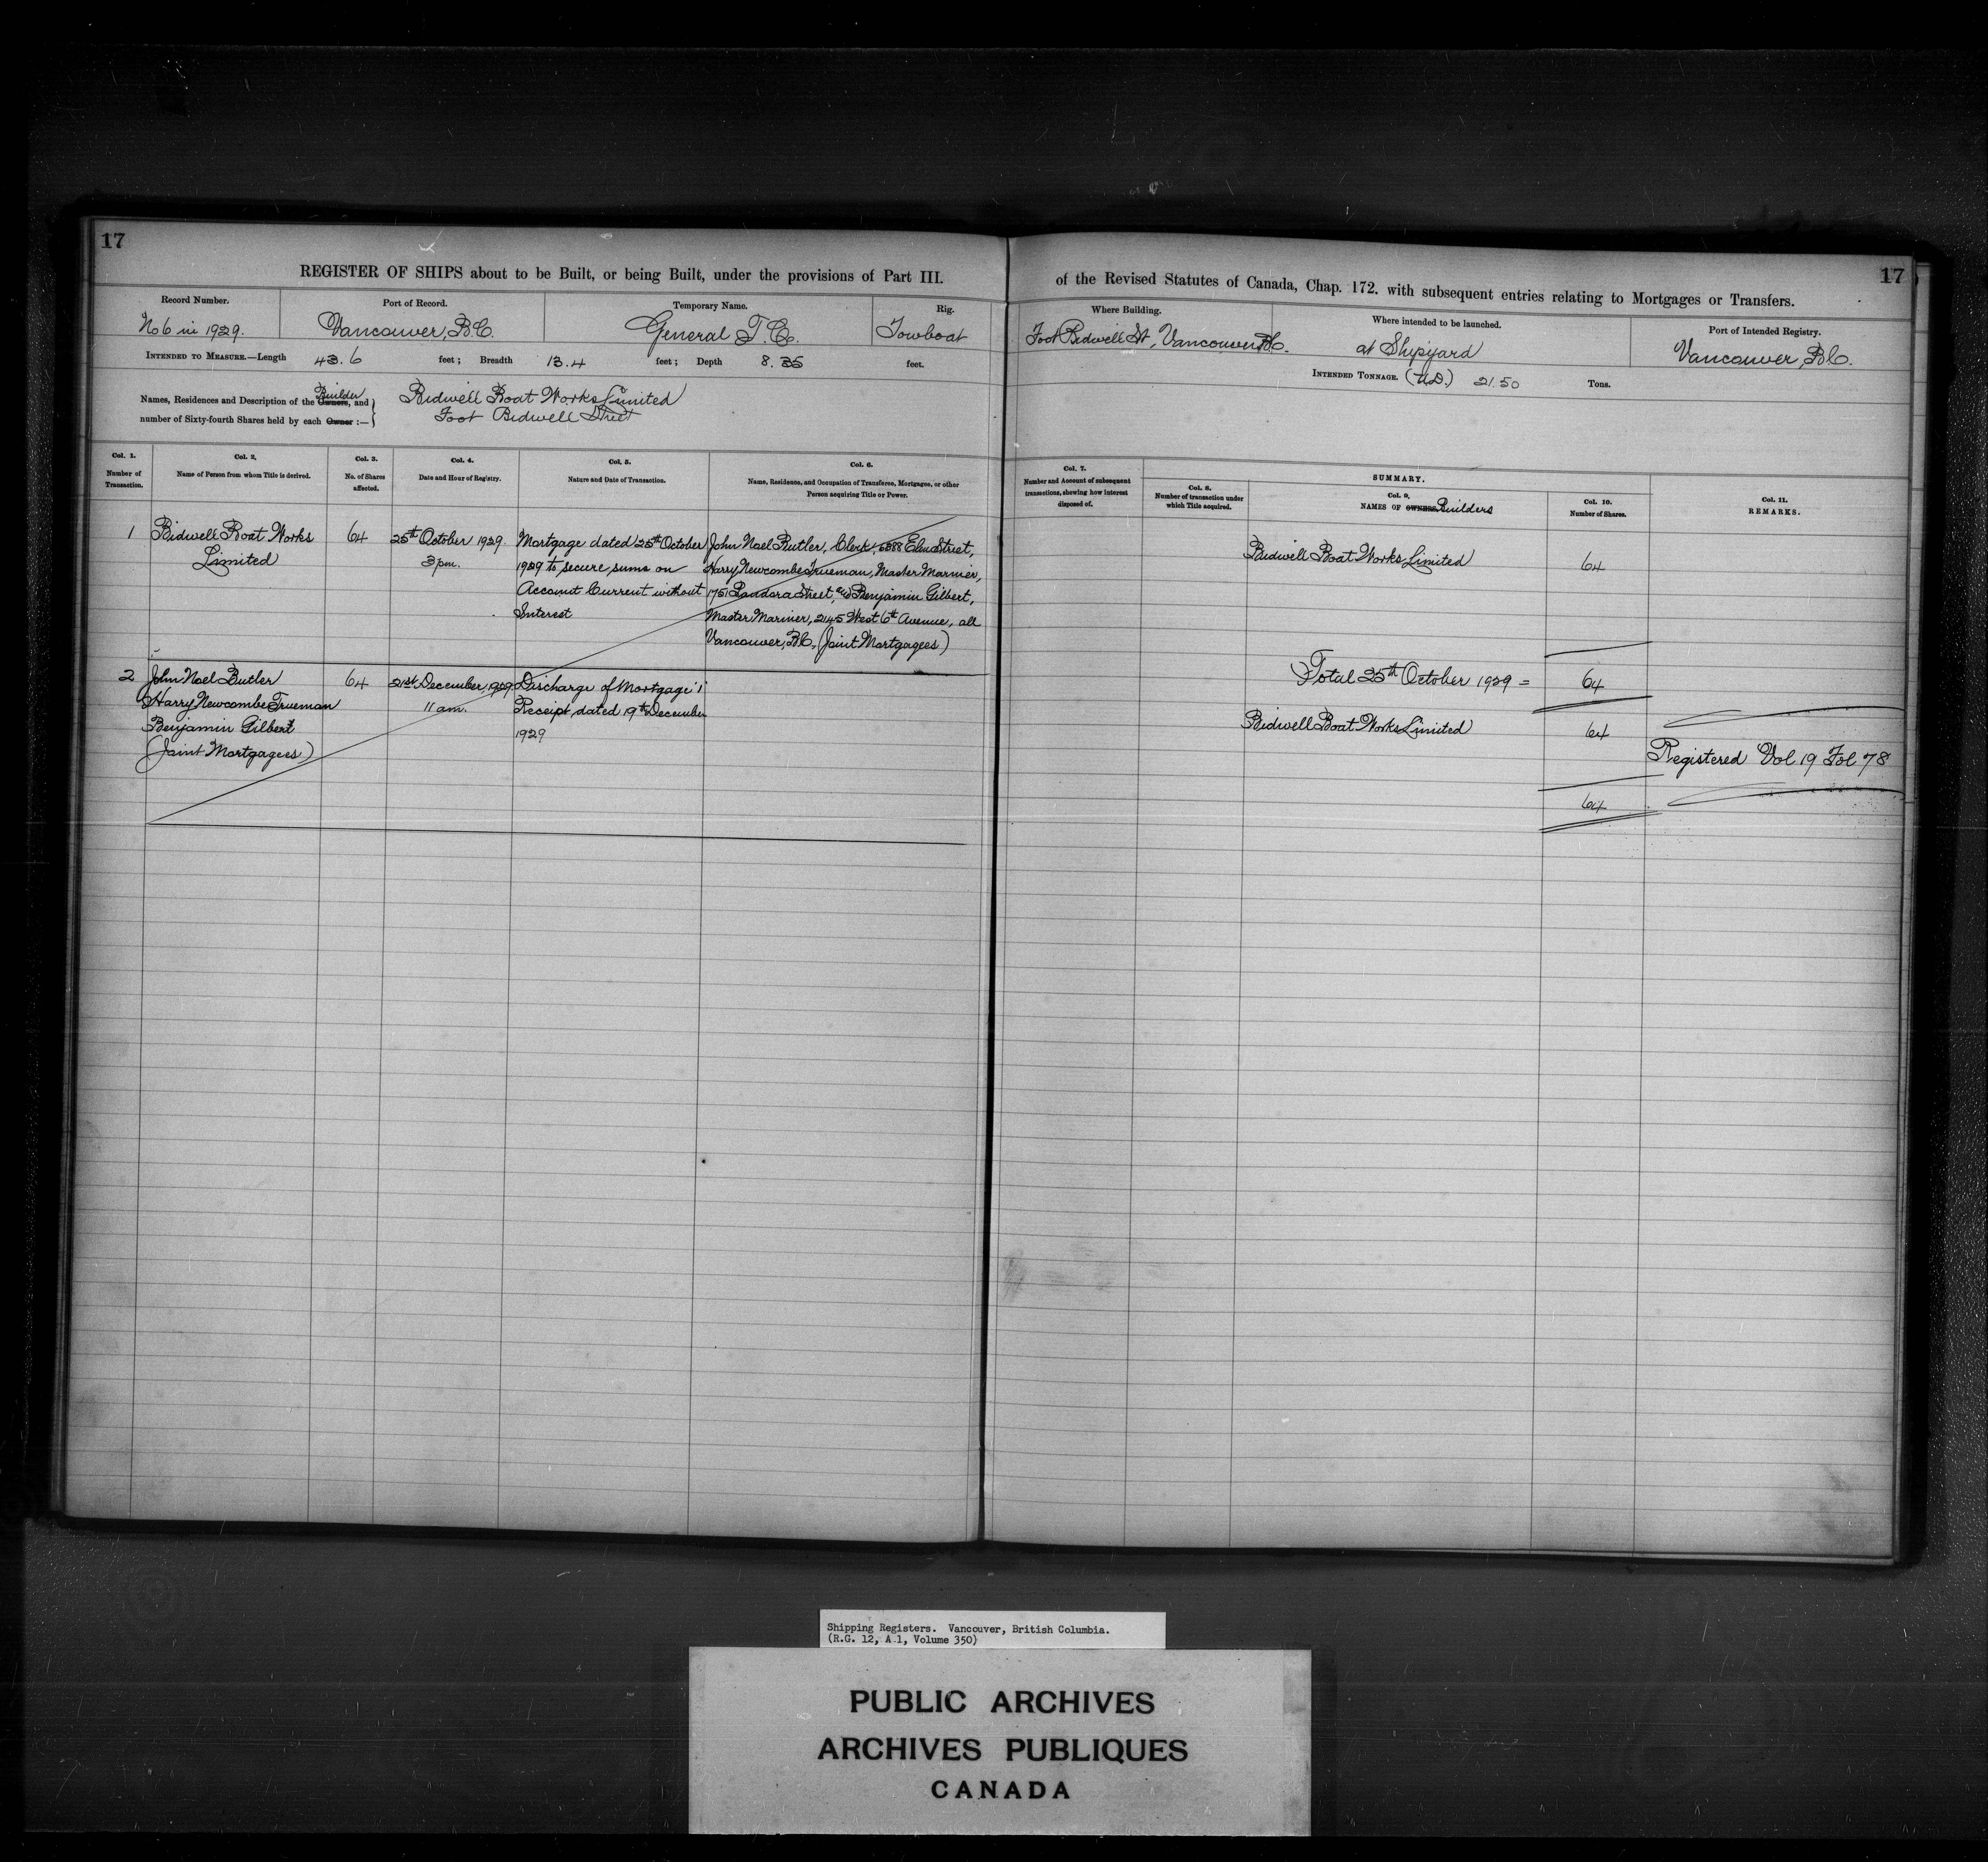 17
REGISTER OF SHIPS about to be Built, or being Built, under the provisions of Part III.
Record Number.
No 6 in 1929.
Port of Record.
Vancouver, B.C.
Temporary Name.
General T. Co.
Rig.
Towboat
INTENDED TO MEASURE.—Length 43.6 feet; Breadth 13.4 feet; Depth 8. feet.
Builder
Names, Residences and Description of the Owners, and
number of Sixty-fourth Shares held by each Owner :—
Bidwell Boat Works Limited
Foot Bidwell Street
Col. 1.
Number of
Transaction.
Col. 2.
Name of Person from whom Title is derived.
Col. 3.
No. of Shares
affected.
Col. 4.
Date and Hour of Registry.
Col. 5.
Nature and Date of Transaction.
Col. 6.
Name, Residence, and Occupation of Transferee, Mortgagee, or other
Person acquiring Title or Power.
1
Bidwell Boat Works
Limited
64
25th October 1929.
3 pm.
Mortgage dated 25th October
1929 to secure sums on
Account Current without
Interest
John Noel Butler, Clerk, Elm Street,
Harry Newcombe Trueman, Master Mariner,
1751 Pandora Street, and Benjamin Gilbert,
Master Mariner, 2145 West 6th Avenue, all
Vancouver, B.C. (Joint Mortgagees)
2
John Noel Butler
Harry Newcombe Trueman
Benjamin Gilbert
(Joint Mortgagees)
64
21st December, 1929
11 am.
Discharge of Mortgage "1"
Receipt dated 19th December
1929
17
of the Revised Statutes of Canada, Chap. 172. with subsequent entries relating to Mortgages or Transfers.
Where Building.
Foot Bidwell St, Vancouver, B.C.
Where intended to be launched.
at Shipyard
Port of Intended Registry.
Vancouver, B.C.
INTENDED TONNAGE. (U.D.) 21.50 Tons.
Col. 7.
Number and Account of subsequent
transactions, shewing how interest
disposed of.
SUMMARY.
Col. 8.
Number of transaction under
which Title acquired.
Col. 9.
NAMES OF OWNERS. Builders
Col. 10.
Number of Shares.
Col. 11.
REMARKS.
Bidwell Boat Works Limited
64
Total 25th October 1929 =
64
Bidwell Boat Works Limited
64
Registered Vol 19 Fol 78
64
Shipping Registers. Vancouver, British Columbia.
(R.G. 12, A 1, Volume 350)
PUBLIC ARCHIVES
ARCHIVES PUBLIQUES
CANADA